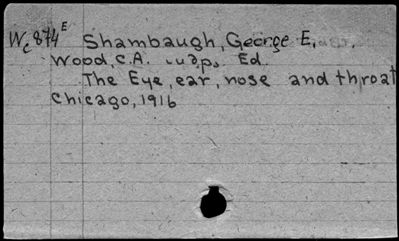 Wc 874 E Shambaugh, George E,
Wood, C.A. Ed.
The Eye, ear, nose and throat
Chicago, 1916